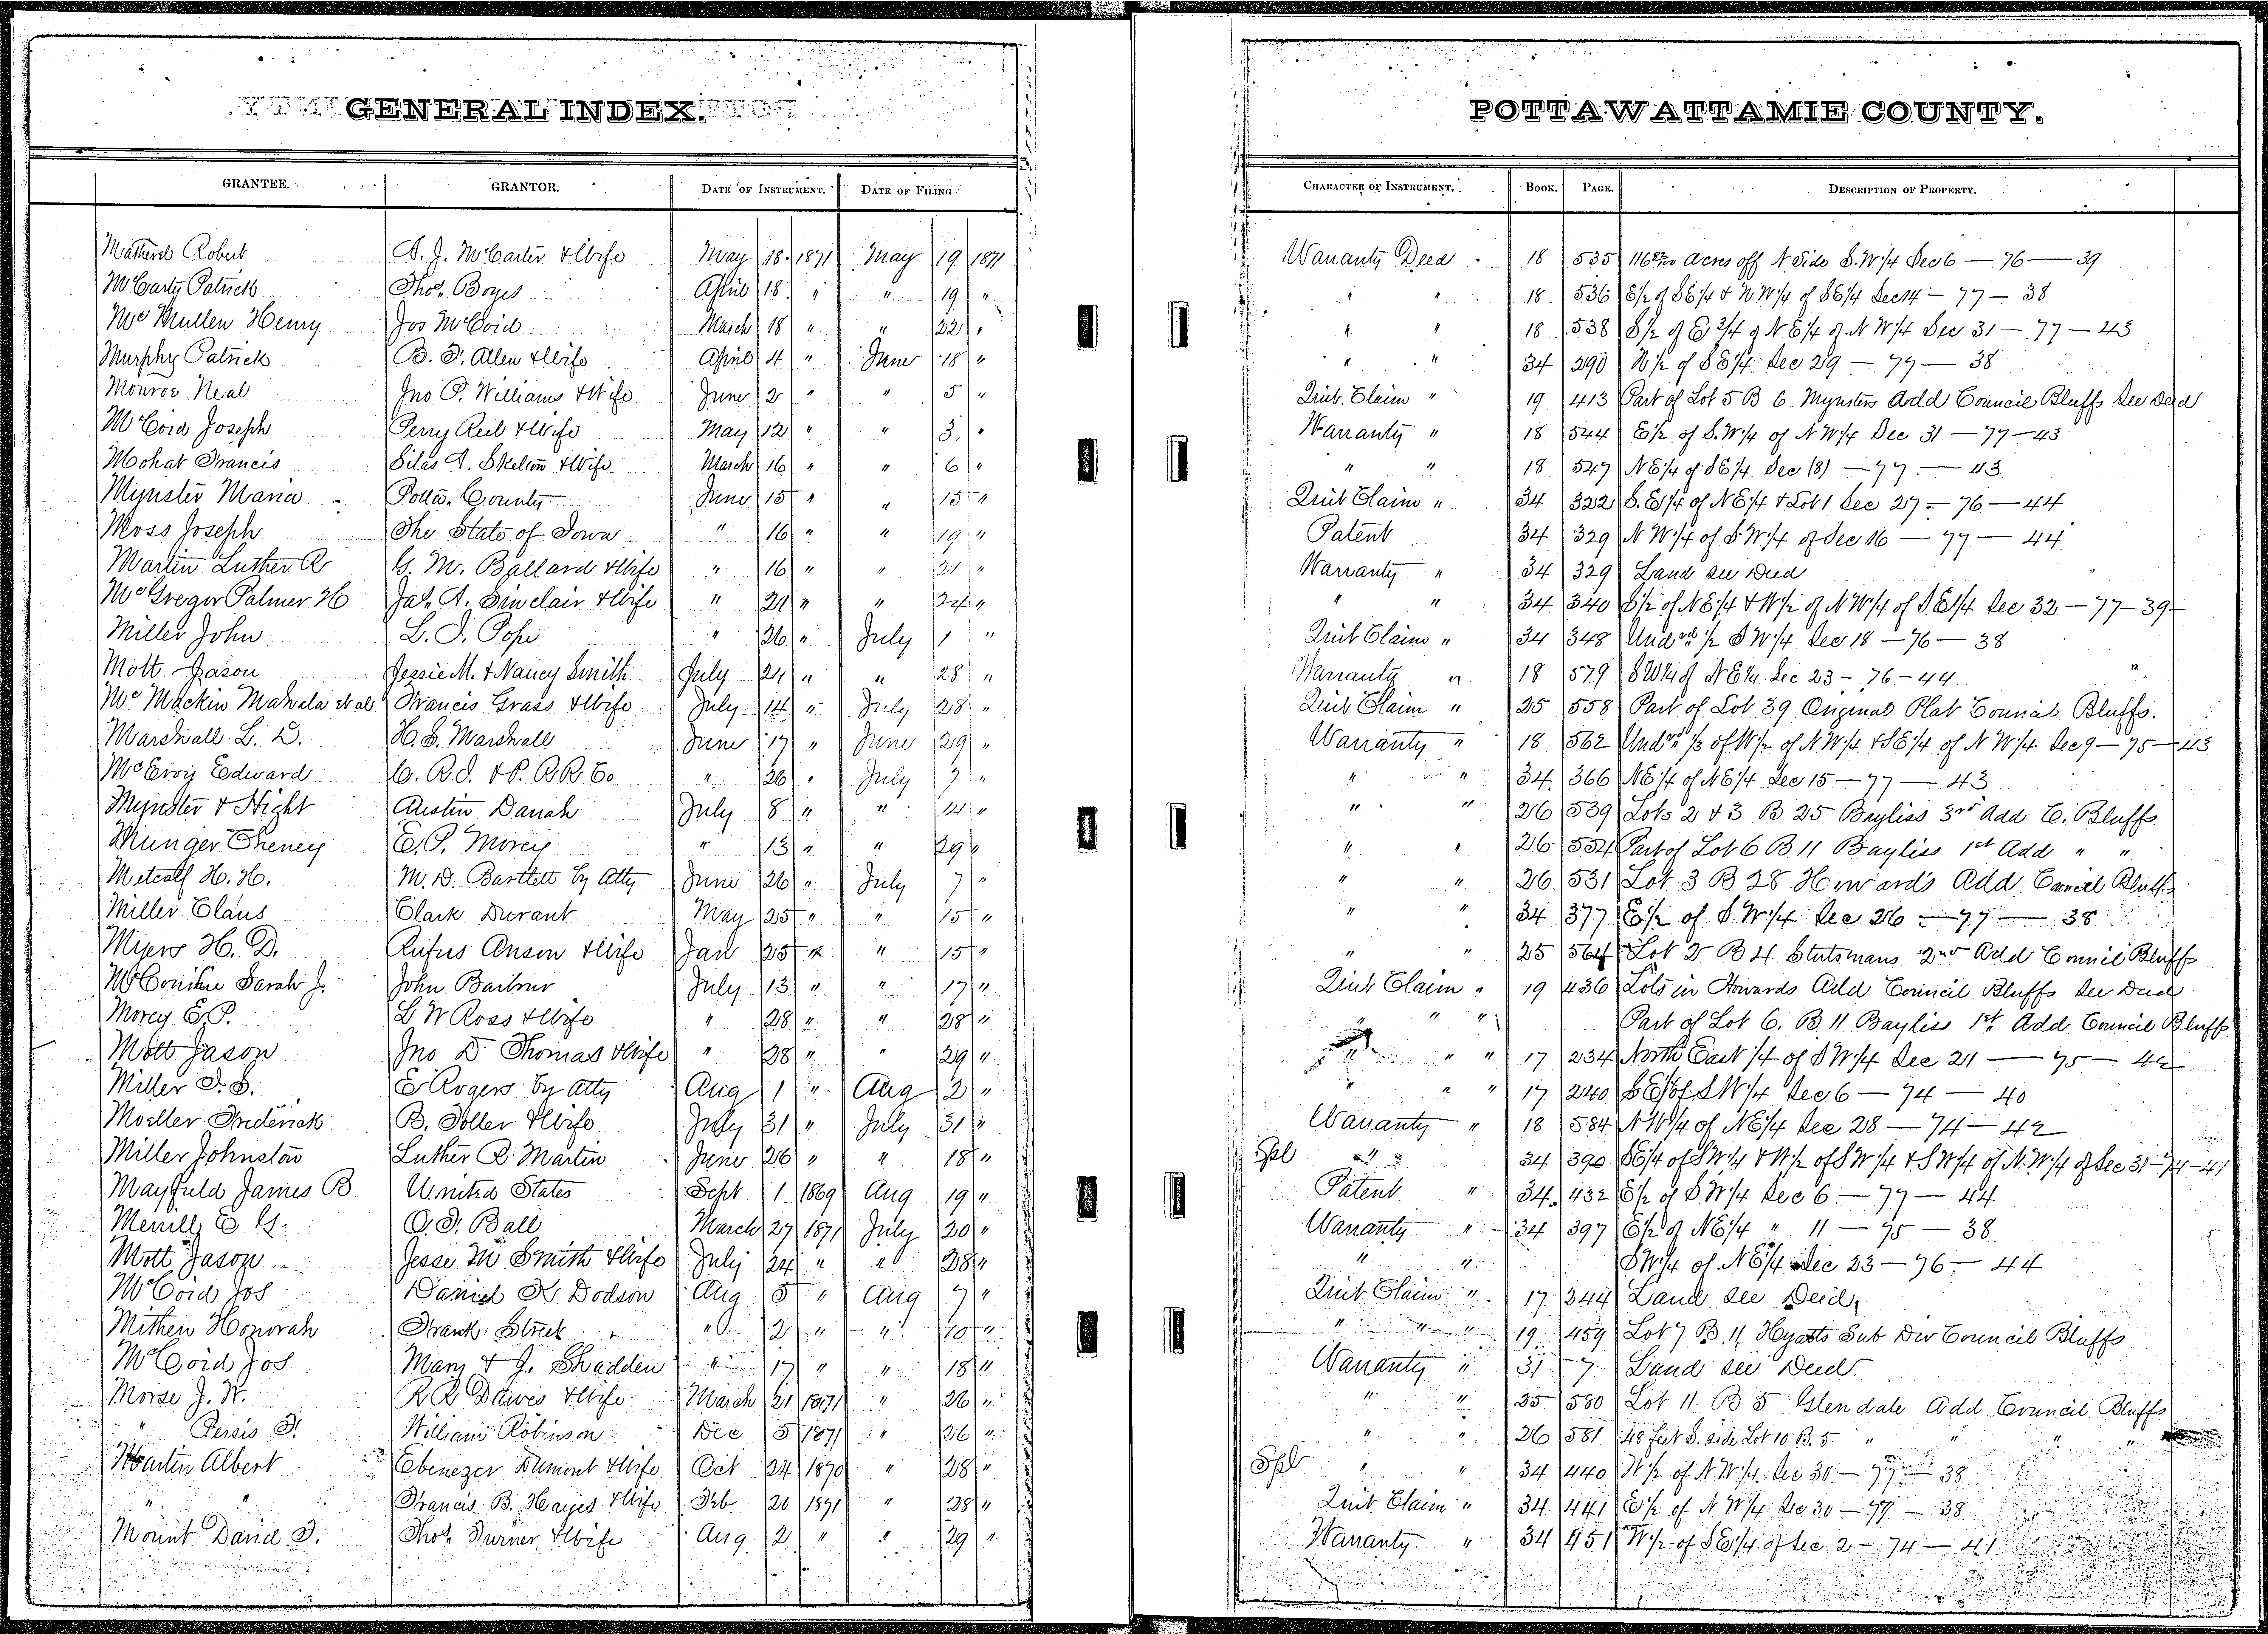 GENERAL INDEX. POTTAWATTAMIE COUNTY.
GRANTEE. GRANTOR. DATE OF INSTRUMENT. DATE OF FILING CHARACTER OF INSTRUMENT. BOOK. PAGE. DESCRIPTION OF PROPERTY.
Robert A. J. McCarter & Wife May 18 1871 May 19 1871 Warranty Deed 18 535 Acres off N Side S.W/4 Sec 6 — 76 — 39
McCarty Patrick Thos. Boyes April 18 " " 19 " " " 18 536 E/2 of SE/4 & N W/4 of SE/4 Sec 14 — 77 — 38
McMullen Henry Jos McCoid March 18 " " 22 " " " 18 538 S/2 of E 3/4 of N E/4 of N W/4 Sec 31 — 77 — 43
Murphy Patrick B. F. Allen & Wife April 4 " June 18 " " " 34 290 N/2 of S E/4 Sec 29 — 77 — 38
Monroe Neal Jno P. Williams & Wife June 2 " " 5 " Quit Claim " 19 413 Part of Lot 5 B 6 Mynsters Add Council Bluffs See Deed
McCoid Joseph Perry Reel & Wife May 12 " " 3 " Warranty " 18 544 E/2 of S.W/4 of N W/4 Sec 31 — 77 — 43
Mohat Francis Silas A. Skelton & Wife March 16 " " 6 " " " 18 547 N E/4 of S E/4 Sec (8) — 77 — 43
Mynster Maria Potta. County June 15 " " 15 " Quit Claim " 34 322 S.E/4 of N E/4 & Lot 1 Sec 27 — 76 — 44
Moss Joseph The State of Iowa " 16 " " 19 " Patent 34 329 N W/4 of S W/4 of Sec 16 — 77 — 44
Martin Luther R G. M. Ballard & Wife " 16 " " 21 " Warranty " 34 329 Land see Deed
McGregor Palmer H Jas. A. Sinclair & Wife " 21 " " 24 " " " 34 340 S/2 of N E/4 & W/2 of N W/4 of S E/4 Sec 32 — 77 — 39
Miller John L. J. Pope " 26 " July 1 " Quit Claim " 34 348 Und 1/2 S W/4 Sec 18 — 76 — 38
Mott Jason Jessie M. & Nancy Smith July 24 " " 28 " Warranty " 18 579 S W/4 of N E/4 Sec 23 — 76 — 44
McMackin Mahala et al Francis Grass & Wife July 14 " July 28 " Quit Claim " 25 558 Part of Lot 39 Original Plat Council Bluffs.
Marshall L. D. H. S. Marshall June 17 " June 29 " Warranty " 18 562 Und 1/3 of W/2 of N W/4 & S E/4 of N W/4 Sec 9 — 75 — 43
McEvoy Edward C. R. I. & P. R R Co. " 26 " July 7 " " " 34 366 N E/4 of N E/4 Sec 15 — 77 — 43
Mynster & Hight Austin Danah July 8 " " 14 " " " 26 539 Lots 2 & 3 B 25 Bayliss 3rd Add C. Bluffs
Munger Theney E. P. Morey " 13 " " 29 " " " 26 554 Part of Lot 6 B 11 Bayliss 1st Add " "
Metcalf H. H. M. D. Bartlett by Atty June 26 " July 7 " " " 26 531 Lot 3 B 28 Howards Add Council Bluffs
Miller Claus Clark Durant May 25 " " 15 " " " 34 377 E/2 of S.W/4 Sec 26 — 77 — 38
Myers H. D. Rufus Anson & Wife Jan 25 " " 15 " " " 25 564 Lot 2 B 4 Stutsmans 2nd Add Council Bluffs
Sarah J. John July 13 " " 17 " Quit Claim " 19 436 Lots in Howards Add Council Bluffs See Deed
Morey E.P. L W Ross & Wife " 28 " " 28 " " " " Part of Lot 6. B 11 Bayliss 1st Add Council Bluffs
Mott Jason Jno D Thomas & Wife " 28 " " 29 " " " " 17 234 North East 1/4 of S W/4 Sec 21 — 75 — 42
Miller I. S. E Rogers by Atty Aug 1 " Aug 2 " " " " 17 240 S E/4 of S W/4 Sec 6 — 74 — 40
Moeller Frederick B. Toller & Wife July 31 " July 31 " Warranty " 18 584 N W/4 of N E/4 Sec 28 — 74 — 42
Miller Johnston Luther R. Martin June 26 " " 18 " Spl " " 34 390 S E/4 of S W/4 & W/2 of S W/4 & S W/4 of N.W/4 of Sec 31 — 74 — 41
Mayfield James B United States Sept 1 1869 Aug 19 " Patent " 34 432 E/2 of S W/4 Sec 6 — 77 — 44
Merrill E G. O. F. Ball March 27 1871 July 20 " Warranty " 34 397 E/2 of N E/4 " 11 — 75 — 38
Mott Jason Jesse M Smith & Wife July 24 " " 28 " " " S W/4 of N E/4 Sec 23 — 76 — 44
McCoid Jos Daniel K Dodson Aug 5 " Aug 7 " Quit Claim " 17 244 Land see Deed,
Mithen Honorah Frank Street " 2 " " 10 " " " " 19 459 Lot 7 B. 11 Hyatts Sub Div Council Bluffs
McCoid Jos Mary & J. Shadden " 17 " " 18 " Warranty " 31 7 Land see Deed
Morse J. W. R R Dawes & Wife March 21 1871 " 26 " " " 25 580 Lot 11 B 5 Glendale Add Council Bluffs
" Persis F. William Robinson Dec 5 1871 " 26 " " " 26 581 48 feet S. side Lot 10 B. 5 " " " "
Martin Albert Ebenezer Dumont & Wife Oct 24 1870 " 28 " Spl " " 34 440 W/2 of N W/4 Sec 30 — 77 — 38
" " Francis B. Hayes & Wife Feb 20 1871 " 28 " Quit Claim " 34 441 E/2 of N W/4 Sec 30 — 77 — 38
Mount David T. Thos. Turner & Wife Aug. 2 " " 29 " Warranty " 34 451 W/2 of S E/4 of Sec 2 — 74 — 41